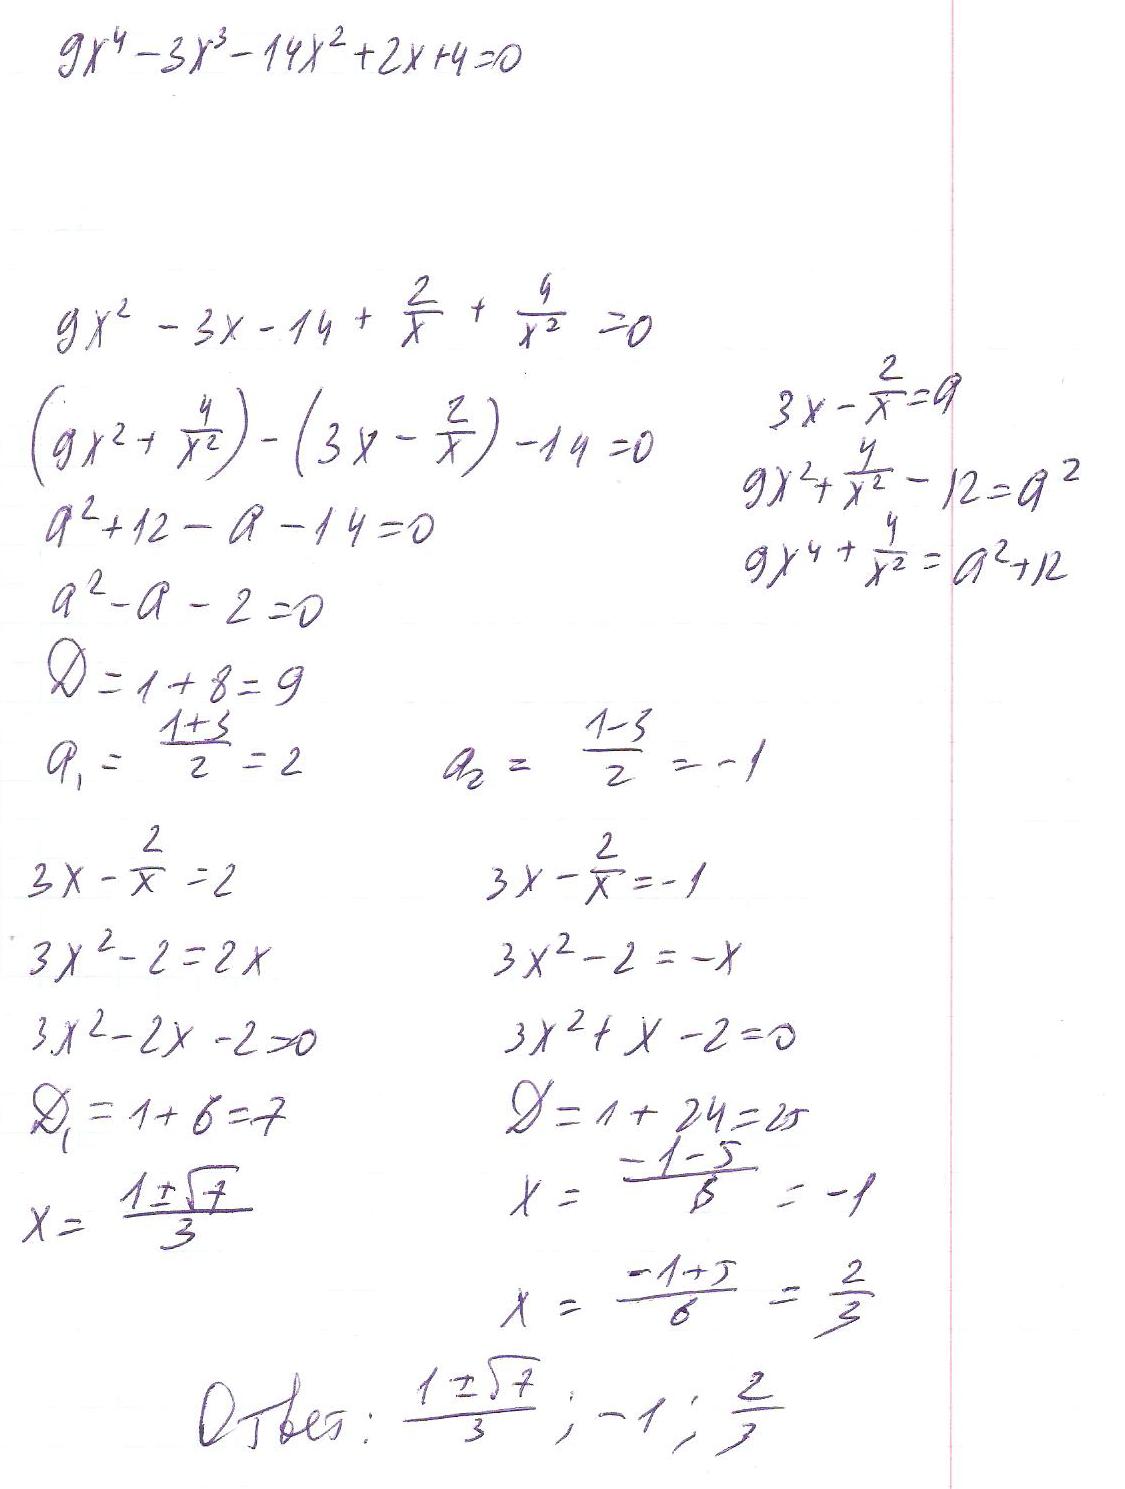 9x⁴ − 3x³ − 14x² + 2x + 4 = 0
9x² − 3x − 14 + 2/x + 4/x² = 0
(9x² + 4/x²) − (3x − 2/x) − 14 = 0
3x − 2/x = a
9x² + 4/x² − 12 = a²
9x⁴ + 4/x² = a² + 12
a² + 12 − a − 14 = 0
a² − a − 2 = 0
D = 1 + 8 = 9
a₁ = (1+3)/2 = 2
a₂ = (1−3)/2 = −1
3x − 2/x = 2
3x² − 2 = 2x
3x² − 2x − 2 = 0
D₁ = 1 + 6 = 7
x = (1 ± √7)/3
3x − 2/x = −1
3x² − 2 = −x
3x² + x − 2 = 0
D = 1 + 24 = 25
x = (−1−5)/6 = −1
x = (−1+5)/6 = 2/3
Ответ: (1 ± √7)/3 ; −1 ; 2/3